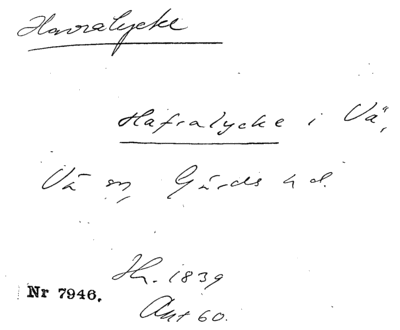 Havralycke
Hafralycke i Vä,
Vä sn, Gärds hd.
Hr. 1839
Nr 7946.
Akt 60.